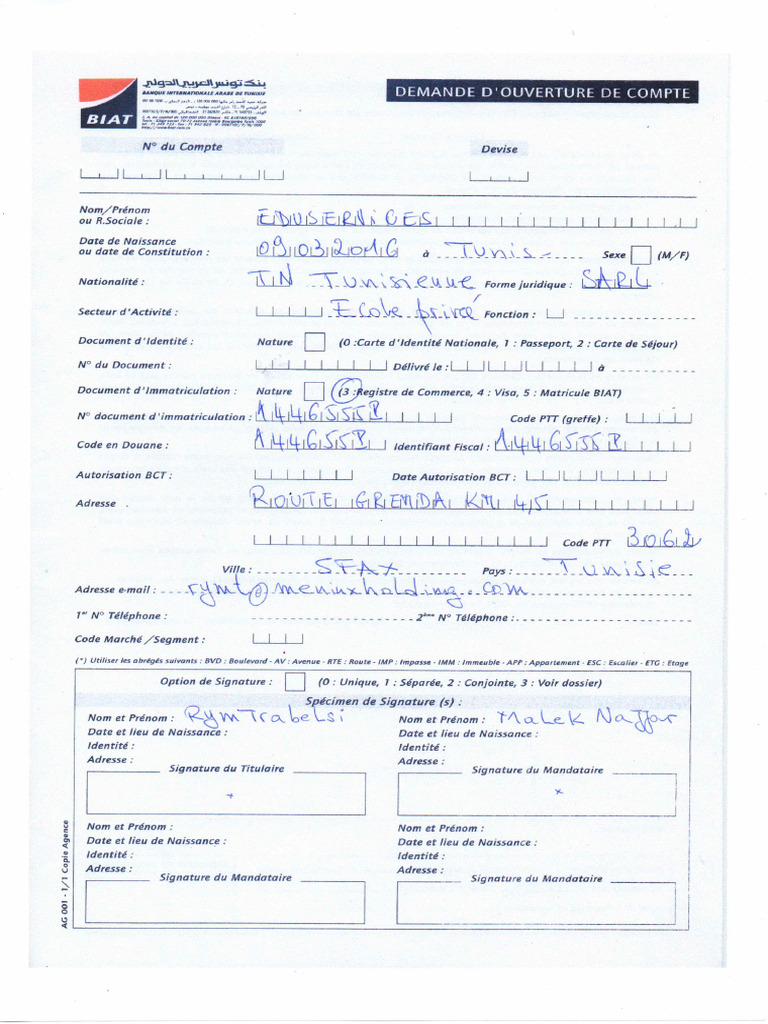 بنك تونس العربي الدولي
BANQUE INTERNATIONALE ARABE DE TUNISIE
BIAT
DEMANDE D'OUVERTURE DE COMPTE
N° du Compte
Devise
Nom/Prénom
ou R.Sociale : EDUSERVICES
Date de Naissance
ou date de Constitution : 09032016 à Tunis Sexe (M/F)
Nationalité : TN Tunisienne Forme juridique : SARL
Secteur d'Activité : Ecole privée Fonction :
Document d'Identité : Nature (0 :Carte d'Identité Nationale, 1 : Passeport, 2 : Carte de Séjour)
N° du Document : Délivré le : à
Document d'Immatriculation : Nature (3 :Registre de Commerce, 4 : Visa, 5 : Matricule BIAT)
N° document d'immatriculation : 1446555P Code PTT (greffe) :
Code en Douane : 144655P Identifiant Fiscal : 1446555P
Autorisation BCT : Date Autorisation BCT :
Adresse . ROUTE GREMDA KM 4,5
Code PTT 3062
Ville : SFAX Pays : Tunisie
Adresse e-mail : rymt@meninxholding.com
1er N° Téléphone : 2ème N° Téléphone :
Code Marché /Segment :
(*) Utiliser les abrégés suivants : BVD : Boulevard - AV : Avenue - RTE : Route - IMP : Impasse - IMM : Immeuble - APP : Appartement - ESC : Escalier - ETG : Etage
Option de Signature : (0 : Unique, 1 : Séparée, 2 : Conjointe, 3 : Voir dossier)
Spécimen de Signature (s) :
Nom et Prénom : Rym Trabelsi
Date et lieu de Naissance :
Identité :
Adresse :
Signature du Titulaire
Nom et Prénom : Malek Najjar
Date et lieu de Naissance :
Identité :
Adresse :
Signature du Mandataire
Nom et Prénom :
Date et lieu de Naissance :
Identité :
Adresse :
Signature du Mandataire
Nom et Prénom :
Date et lieu de Naissance :
Identité :
Adresse :
Signature du Mandataire
AG 001 - 1/1 Copie Agence